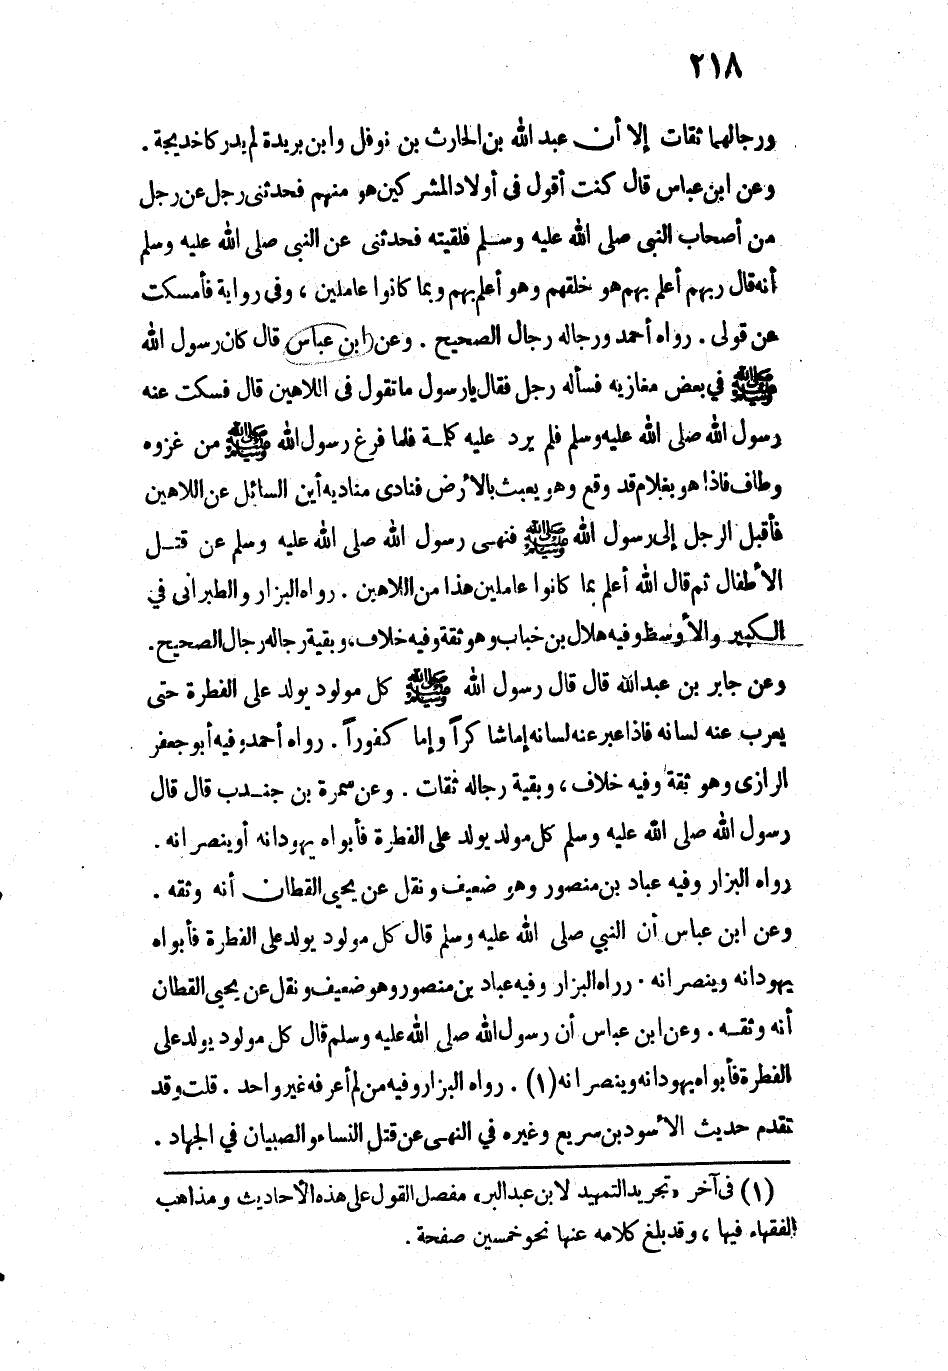 ٢١٨
ورجالهما ثقات إلا أن عبد الله بن الحارث بن نوفل وابن بريدة لم يدركا خديجة .
وعن ابن عباس قال كنت أقول فى أولاد المشركين هو منهم فحدثنى رجل عن رجل
من أصحاب النبى صلى الله عليه وسلم فلقيته فحدثنى عن النبى صلى الله عليه وسلم
أنه قال ربهم أعلم بهم هو خلقهم وهو أعلم بهم وبما كانوا عاملين ، وفى رواية فأمسكت
عن قولى . رواه أحمد ورجاله رجال الصحيح . وعن ابن عباس قال كان رسول الله
ﷺ في بعض مغازيه فسأله رجل فقال يارسول ماتقول فى اللاهين قال فسكت عنه
رسول الله صلى الله عليه وسلم فلم يرد عليه كلمة فلما فرغ رسول الله ﷺ من غزوه
وطاف فاذا هو بغلام قد وقع وهو يعبث بالأرض فنادى مناديه أين السائل عن اللاهين
فأقبل الرجل إلى رسول الله ﷺ فنهى رسول الله صلى الله عليه وسلم عن قتل
الأطفال ثم قال الله أعلم بما كانوا عاملين هذا من اللاهين . رواه البزار والطبرانى في
الكبير والأوسط وفيه هلال بن خباب وهو ثقة وفيه خلاف ، وبقية رجاله رجال الصحيح.
وعن جابر بن عبدالله قال قال رسول الله ﷺ كل مولود يولد على الفطرة حتى
يعرب عنه لسانه فاذا عبر عنه لسانه إما شاكراً وإما كفوراً . رواه أحمد وفيه أبو جعفر
الرازى وهو ثقة وفيه خلاف ، وبقية رجاله ثقات . وعن سمرة بن جندب قال قال
رسول الله صلى الله عليه وسلم كل مولد يولد على الفطرة فأبواه يهودانه أو ينصرانه .
رواه البزار وفيه عباد بن منصور وهو ضعيف ونقل عن يحيى القطان أنه وثقه .
وعن ابن عباس أن النبي صلى الله عليه وسلم قال كل مولود يولد على الفطرة فأبواه
يهودانه وينصرانه . رراه البزار وفيه عباد بن منصور وهو ضعيف ونقل عن يحيى القطان
أنه وثقه . وعن ابن عباس أن رسول الله صلى الله عليه وسلم قال كل مولود يولد على
الفطرة فأبواه يهودانه وينصرانه (١) . رواه البزار وفيه من لم أعرفه غير واحد . قلت وقد
تقدم حديث الأسود بن سريع وغيره في النهى عن قتل النساء والصبيان في الجهاد .
(١) فى آخر «تجريد التمهيد لابن عبد البر» مفصل القول على هذه الأحاديث ومذاهب
الفقهاء فيها ، وقد بلغ كلامه عنها نحو خمسين صفحة .